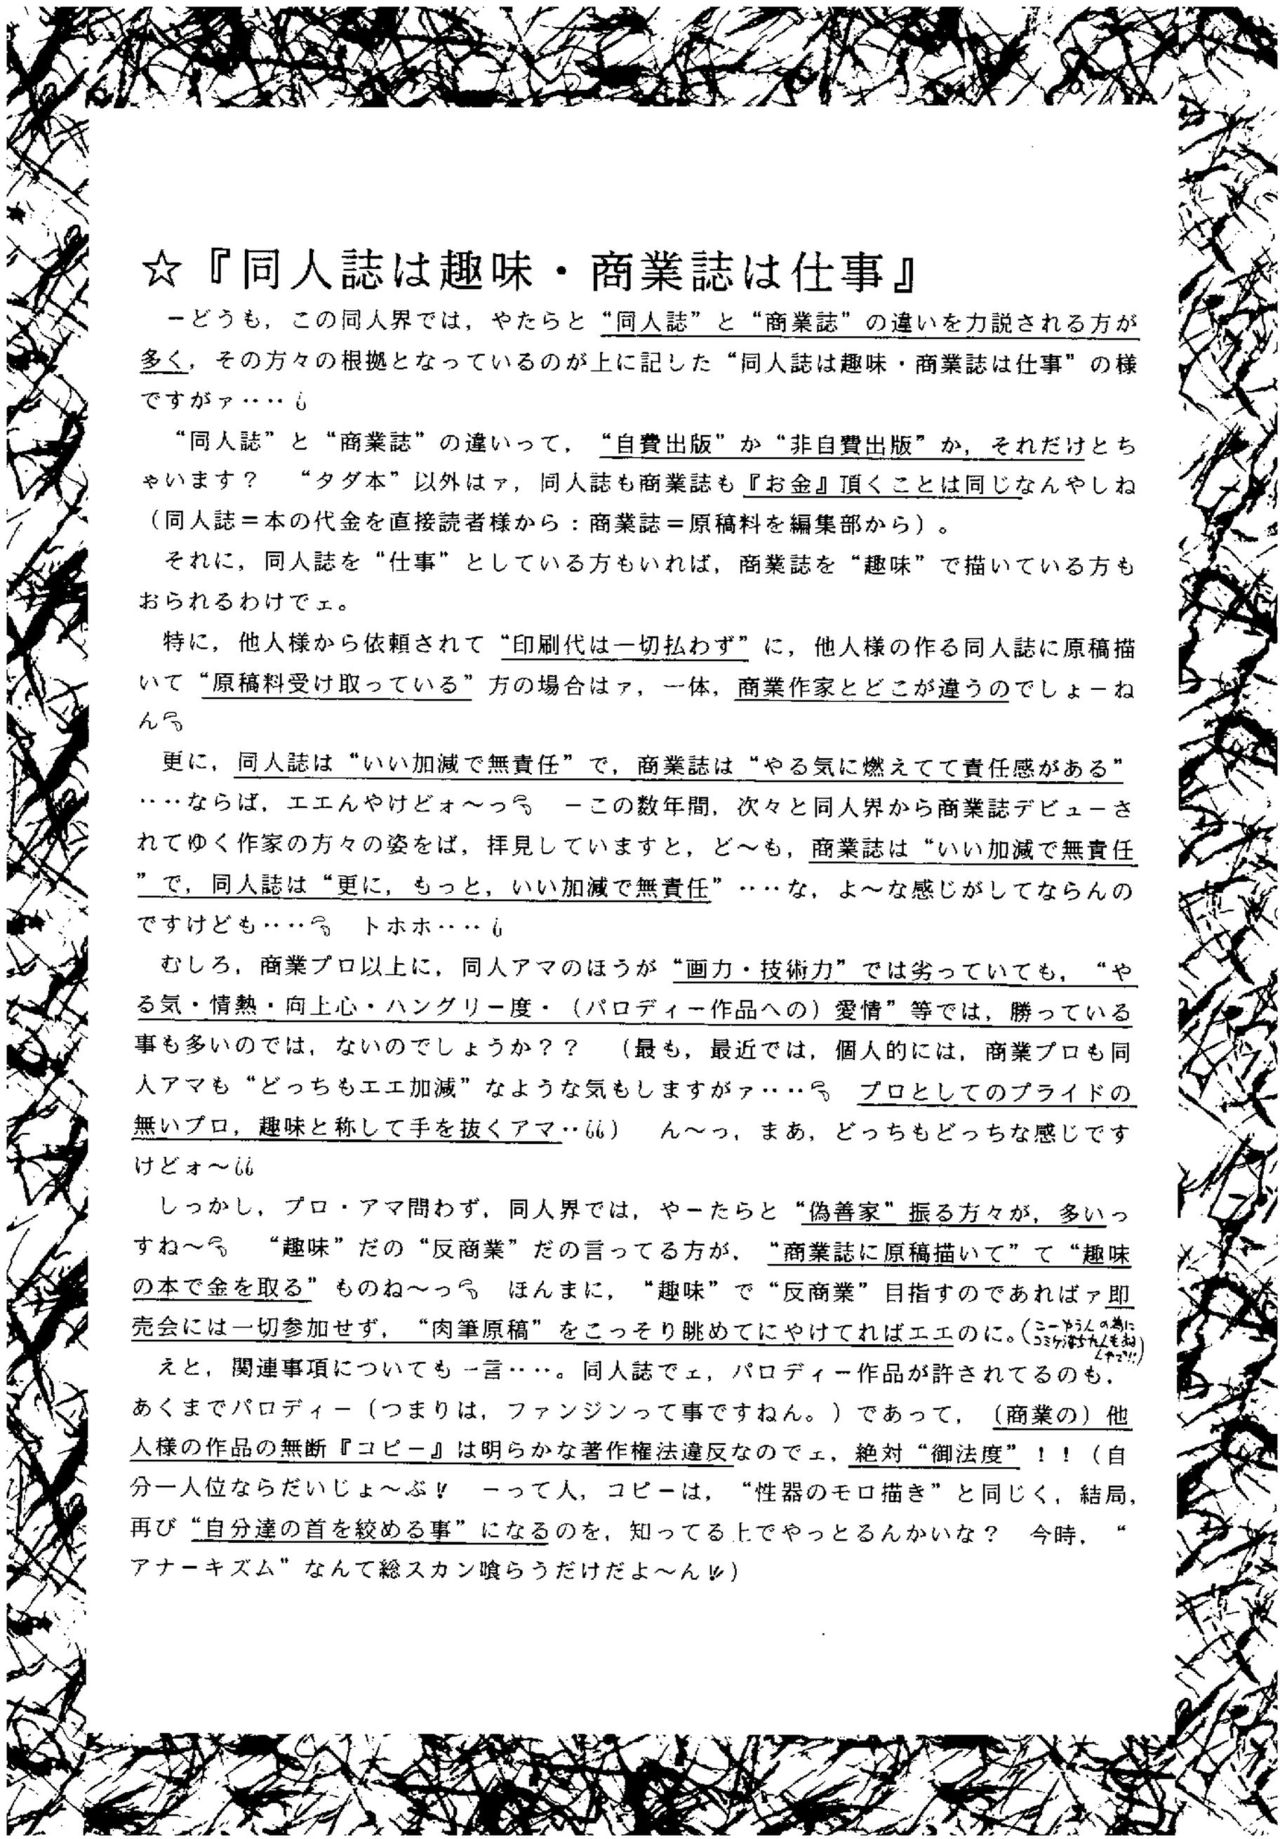 ☆『同人誌は趣味・商業誌は仕事』
－どうも，この同人界では，やたらと“同人誌”と“商業誌”の違いを力説される方が
多く，その方々の根拠となっているのが上に記した“同人誌は趣味・商業誌は仕事”の様
ですがァ‥‥
“同人誌”と“商業誌”の違いって，“自費出版”か“非自費出版”か，それだけとち
ゃいます？　“タダ本”以外はァ，同人誌も商業誌も『お金』頂くことは同じなんやしね
（同人誌＝本の代金を直接読者様から：商業誌＝原稿料を編集部から）。
それに，同人誌を“仕事”としている方もいれば，商業誌を“趣味”で描いている方も
おられるわけでェ。
特に，他人様から依頼されて“印刷代は一切払わず”に，他人様の作る同人誌に原稿描
いて“原稿料受け取っている”方の場合はァ，一体，商業作家とどこが違うのでしょーね
ん
更に，同人誌は“いい加減で無責任”で，商業誌は“やる気に燃えてて責任感がある”
‥‥ならば，エエんやけどォ～っ　－この数年間，次々と同人界から商業誌デビューさ
れてゆく作家の方々の姿をば，拝見していますと，ど～も，商業誌は“いい加減で無責任
”で，同人誌は“更に，もっと，いい加減で無責任”‥‥な，よ～な感じがしてならんの
ですけども‥‥　トホホ‥‥
むしろ，商業プロ以上に，同人アマのほうが“画力・技術力”では劣っていても，“や
る気・情熱・向上心・ハングリー度・（パロディー作品への）愛情”等では，勝っている
事も多いのでは，ないのでしょうか？？　（最も，最近では，個人的には，商業プロも同
人アマも“どっちもエエ加減”なような気もしますがァ‥‥　プロとしてのプライドの
無いプロ，趣味と称して手を抜くアマ‥）　ん～っ，まあ，どっちもどっちな感じです
けどォ～
しっかし，プロ・アマ問わず，同人界では，やーたらと“偽善家”振る方々が，多いっ
すね～　“趣味”だの“反商業”だの言ってる方が，“商業誌に原稿描いて”て“趣味
の本で金を取る”ものね～っ　ほんまに，“趣味”で“反商業”目指すのであればァ即
売会には一切参加せず，“肉筆原稿”をこっそり眺めてにやけてればエエのに。（こーゆう人の為に
コミケ落ちた人もおる
んやで!!）
えと，関連事項についても一言‥‥。同人誌でェ，パロディー作品が許されてるのも，
あくまでパロディー（つまりは，ファンジンって事ですねん。）であって，（商業の）他
人様の作品の無断『コピー』は明らかな著作権法違反なのでェ，絶対“御法度”！！（自
分一人位ならだいじょ～ぶ!!　－って人，コピーは，“性器のモロ描き”と同じく，結局，
再び“自分達の首を絞める事”になるのを，知ってる上でやっとるんかいな？　今時，“
アナーキズム”なんて総スカン喰らうだけだよ～ん!!）